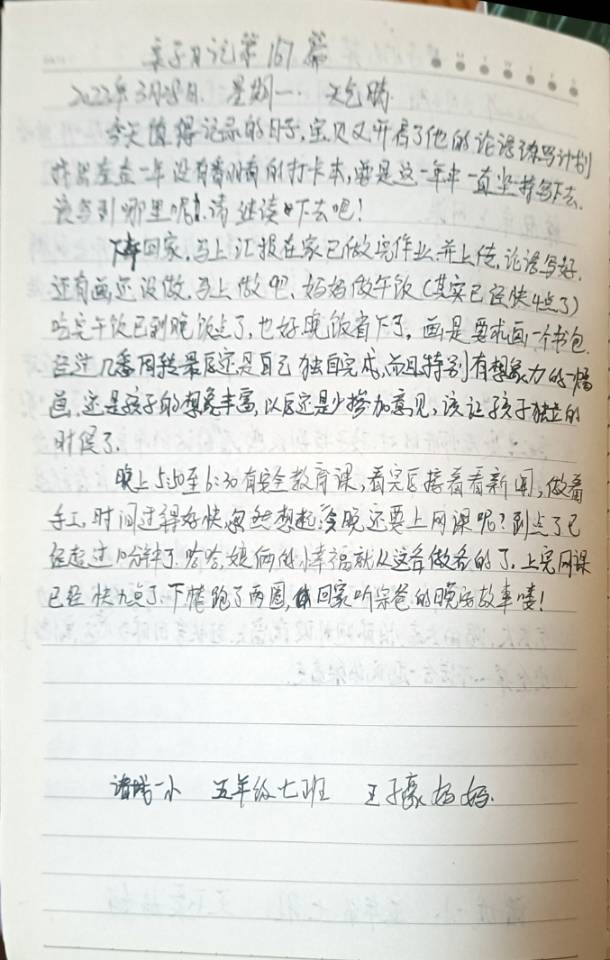 亲子日记第167篇
2022年3月28日. 星期一. 天气晴.
今天值得记录的日子,宝贝又开启了他的论语抄写计划
整整一年没有看的打卡本,要是这一年中一直坚持写下去.
该写到哪里呢!请继续下去吧!
下午回家.马上汇报在家已做完作业.并上传.论语写好.
还有画还没做.马上做吧.妈妈做午饭(其实已经快4点了)
吃完午饭已到晚饭点了,也好晚饭省下了.画是要求画一个书包.
经过几番周转最后还是自己独自完成,而且特别有想象力的一幅
画.还是孩子的想象丰富,以后还是少掺加意见,该让孩子独立的
时候了.
晚上5:50至6:30有安全教育课,看完后接着看新闻,做着
手工.时间过得好快忽然想起:今晚还要上网课呢?到点了已
经超过10分钟了.哈哈.娘俩的小幸福就从这看做看的了.上完网课
已经快九点了.下楼跑了两圈,回家听宗爸的晚安故事喽!
诸城一小 五年级七班 王子豪妈妈.